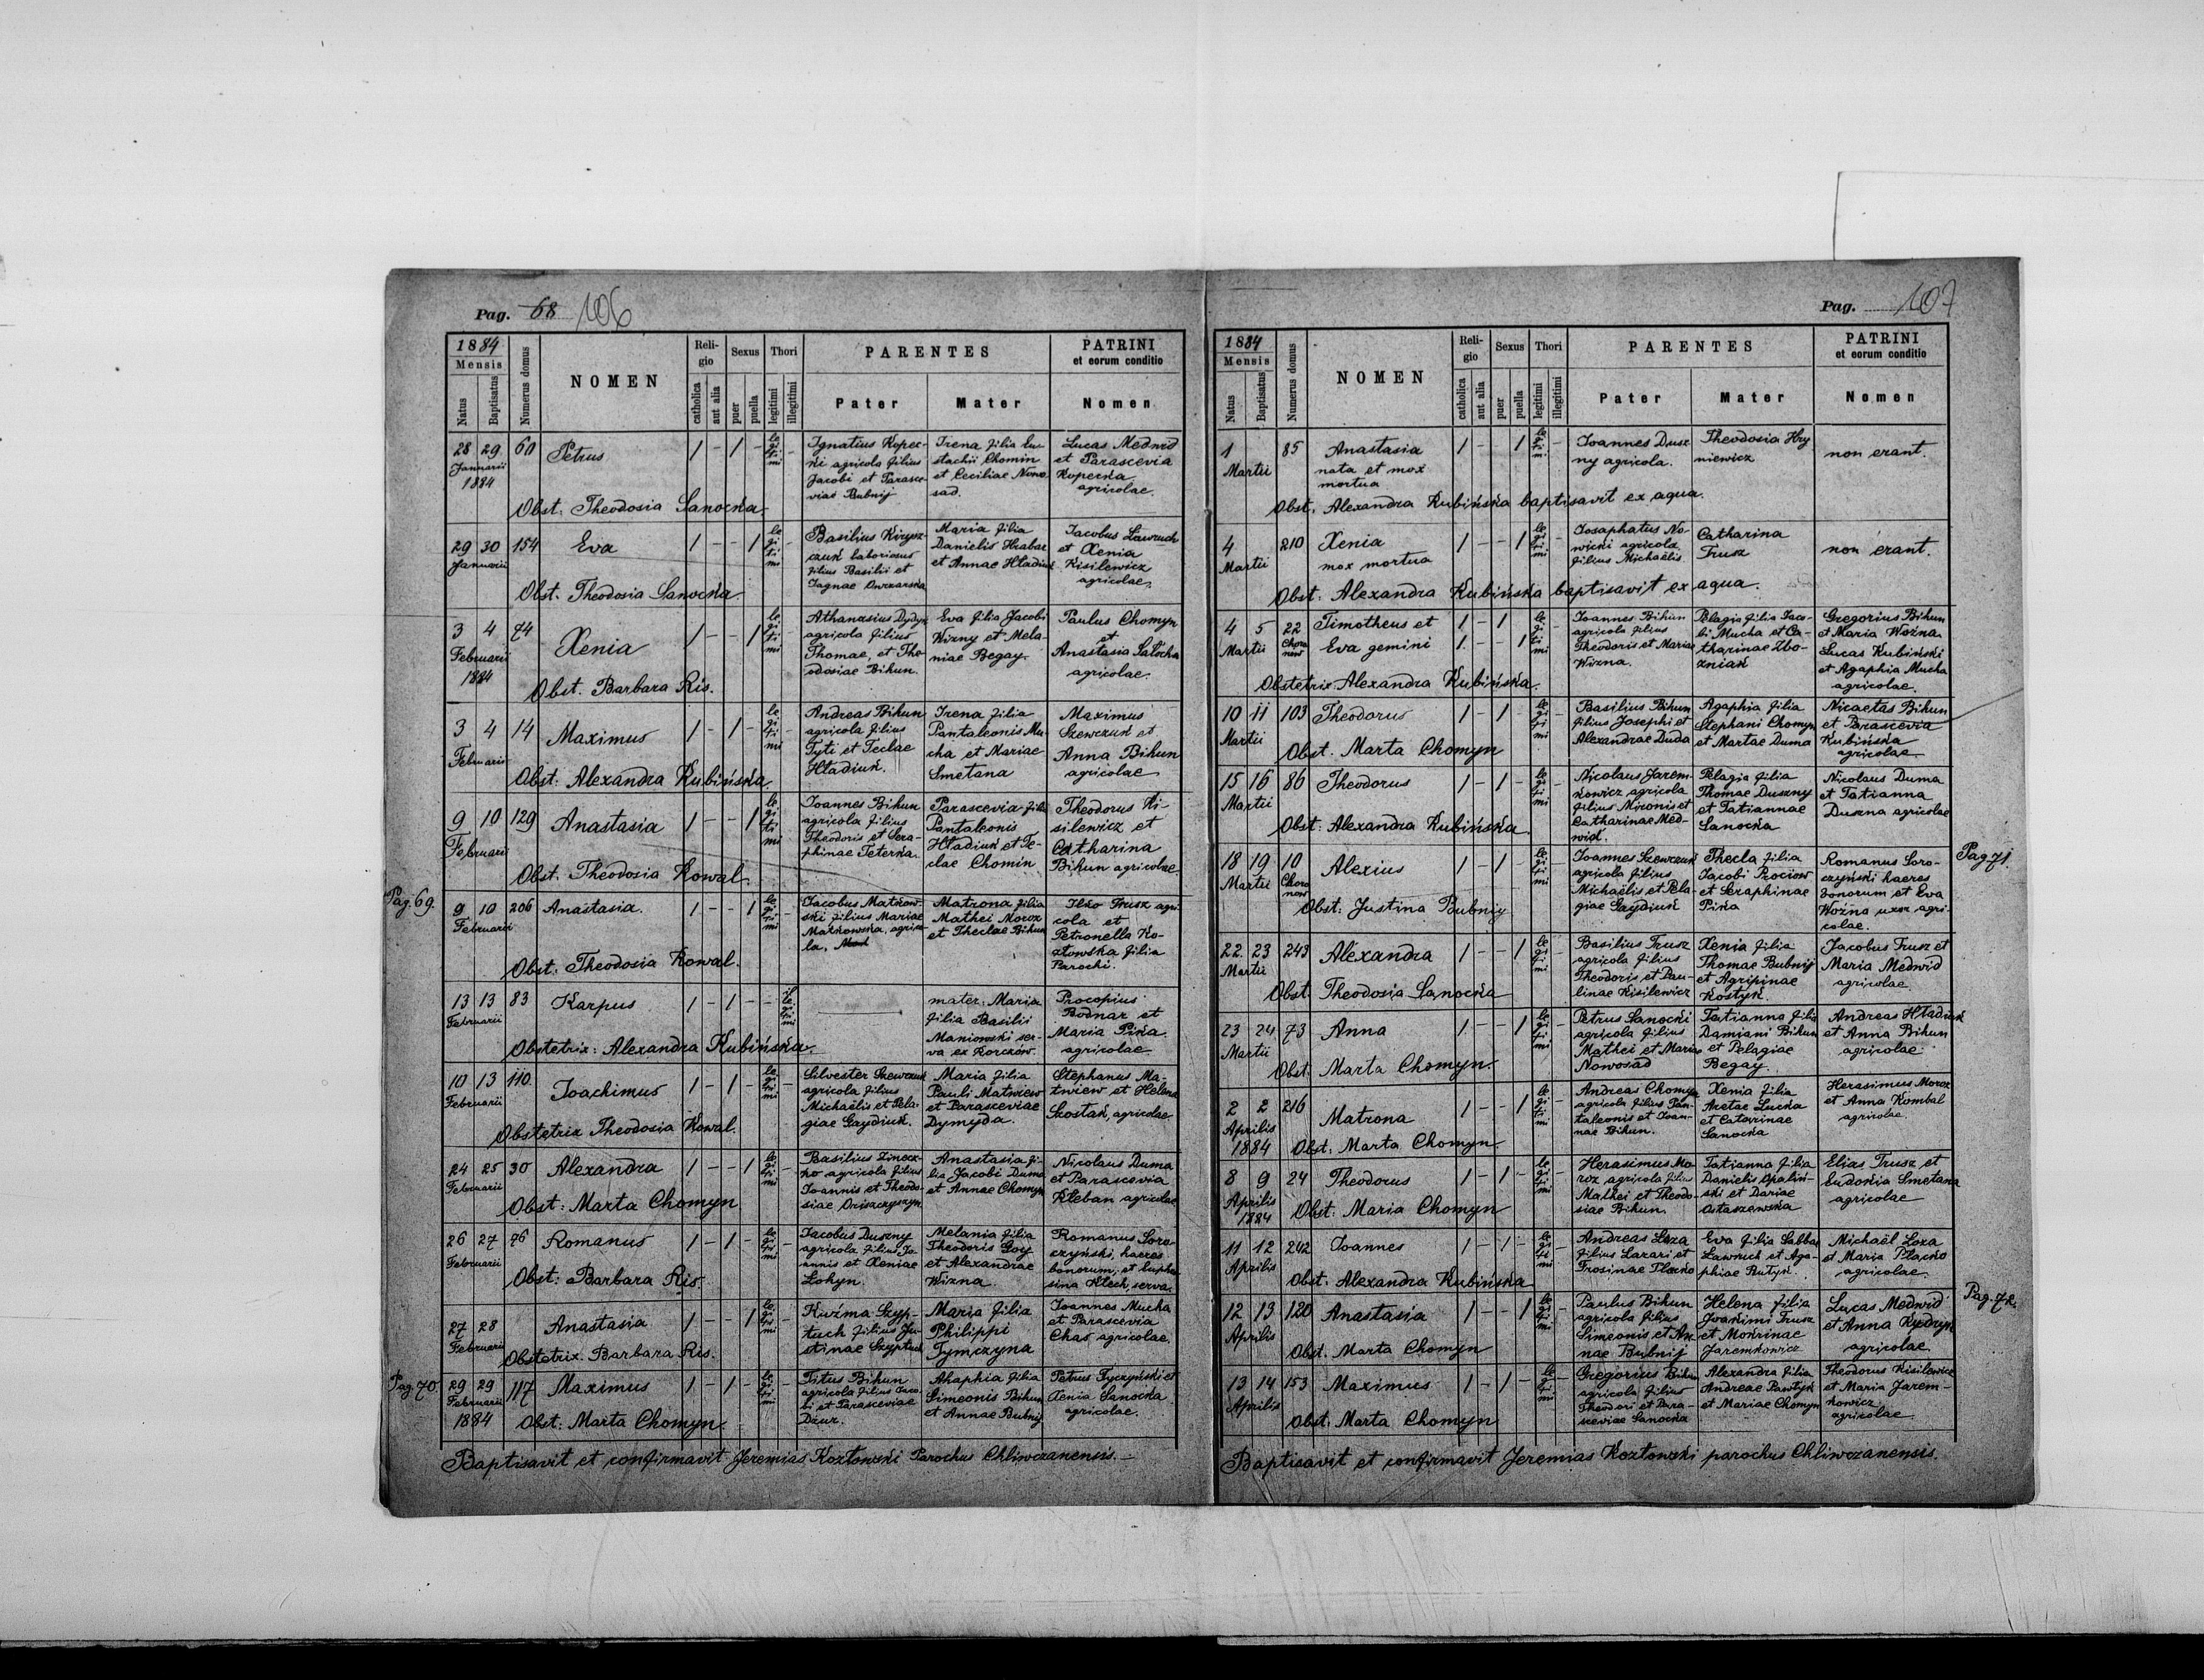 Pag. 68 106
1884
Mensis
Natus
Baptisatus
Numerus domus
NOMEN
Religio
catholica
aut alia
Sexus
puer
puella
Thori
legitimi
illegitimi
PARENTES
Pater
Mater
PATRINI
et eorum conditio
Nomen
28 29 60 Petrus 1 - 1 - legitimi -
Januarii
1884
Ignatius Kopec-
ki agricola filius
Jacobi et Parasce-
viae Bubnij
Irena filia Eu-
stachii Chomin
et Ceciliae Nowo
sad.
Lucas Medwid
et Parascevia
Kopecka
agricolae.
Obst: Theodosia Sanocka
29 30 154 Eva 1 - - 1 legitimi
Januarii
Basilius Kirysz-
czuk laboriosus
filius Basilii et
Jagnae Owczarska
Maria filia
Danielis Hrabar
et Annae Hładiuk
Jacobus Ławruch
et Xenia
Kisilewicz
agricolae.
Obst. Theodosia Sanocka.
3 4 74 Xenia 1 - - 1 legitimi -
Februarii
1884
Athanasius Dydyk
agricola filius
Thomae, et The-
odosiae Bihun.
Eva filia Jacobi
Wizny et Mela-
niae Begay.
Paulus Chomyn
et
Anastasia Sałocha
agricolae.
Obst. Barbara Ris.
3 4 14 Maximus 1 - 1 - legitimi -
Februarii
Andreas Bihun
agricola filius
Tyti et Teclae
Hładiuk.
Irena filia
Pantaleonis Mu
cha et Mariae
Smetana
Maximus
Szewczuk et
Anna Bihun
agricolae
Obst: Alexandra Kubińska
9 10 129 Anastasia 1 - - 1 legitimi -
Februarii
Joannes Bihun
agricola filius
Theodoris et Sera-
phinae Teterka.
Parascevia filia
Pantaleonis
Hładiuk et Te-
clae Chomin
Theodorus Ki-
silewicz et
Catharina
Bihun agricolae.
Obst. Theodosia Kowal.
Pag. 69.
9 10 206 Anastasia. 1 - - 1 legitimi -
Februarii
Jacobus Matkow-
ski filius Mariae
Matkowska, agrico
la.
Matrona filia
Mathei Moroz
et Theclae Bihun
Ilko Trusz agri
cola et
Petronella Ko-
złowska filia
Parochi.
Obst: Theodosia Kowal.
13 13 83 Karpus 1 - 1 - - illegitimi
Februarii
mater: Maria
filia Basilii
Maniowski ser-
va ex Korczów.
Procopius
Bodnar et
Maria Pika
agricolae
Obstetrix: Alexandra Kubińska.
10 13 110. Joachimus 1 - 1 - legitimi -
Februarii
Silvester Szewczuk
agricola filius
Michaëlis et Pela-
giae Gaydiuk.
Maria filia
Pauli Matwiew
et Parasceviae
Dymyda.
Stephanus Ma-
twiew et Helena
Szostak, agricolae
Obstetrix Theodosia Kowal.
24 25 30 Alexandra 1 - - 1 legitimi -
Februarii
Basilius Zinecz-
ko agricola filius
Joannis et Theodo-
siae
Anastasia fi-
lia Jacobi Duma
et Annae Chomyn
Nicolaus Duma
et Parascevia
Kleban agricolae
Obst: Marta Chomyn
26 27 76 Romanus 1 - 1 - legitimi -
Februarii
Jacobus Duszny
agricola filius Jo-
annis et Xeniae
Łohyn.
Melania filia
Theodoris Goy
et Alexandrae
Wizna.
Romanus Soro-
czyński, haeres
bonorum, et Euphro
sina Klech, serva.
Obst: Barbara Ris.
27 28 Anastasia 1 - - 1 legitimi -
Februarii
Kuźma Szyp-
tuch filius Ju-
stinae Szyptuch
Maria filia
Philippi
Tymczyna
Joannes Mucha
et Parascevia
Chas agricolae
Obstetrix. Barbara Ris.
Pag. 70.
29 29 117 Maximus 1 - 1 - legitimi -
Februarii
1884
Titus Bihun
agricola filius Jaco-
bi et Parasceviae
Dzur.
Ahaphia filia
Simeonis Bihun
et Annae Bubnij
Petrus Tyczyński et
Xenia Sanocka
agricolae.
Obst: Marta Chomyn.
Baptisavit et confirmavit Jeremias Kozłowski Parochus Chliwczanensis.-
Pag. 107
1884
Mensis
Natus
Baptisatus
Numerus domus
NOMEN
Religio
catholica
aut alia
Sexus
puer
puella
Thori
legitimi
illegitimi
PARENTES
Pater
Mater
PATRINI
et eorum conditio
Nomen
1 85 Anastasia 1 - 1 legitimi -
Martii
nata et mox
mortua
Joannes Dusz
ny agricola.
Theodosia Hry
niewicz
non erant.
Obst. Alexandra Kubińska baptisavit ex aqua.
4 210 Xenia 1 - - 1 legitimi -
Martii
mox mortua
Josaphatus No-
wicki agricola
filius Michaëlis
Catharina
Trusz
non erant.
Obst: Alexandra Kubińska baptisavit ex aqua.
4 5 22 Timotheus et 1 - 1 - legitimi -
Martii
Eva gemini 1 - - 1
Joannes Bihun
agricola filius
Theodoris et Mariae
Wizna.
Pelagia filia Jaco-
bi Mucha et Ca-
tharinae Zbo-
zniak
Gregorius Bihun
et Maria Woźna.
Lucas Kubiński
et Agaphia Mucha
agricolae.
Obstetrix: Alexandra Kubińska.
10 11 103 Theodorus 1 - 1 - legitimi -
Martii
Basilius Bihun
filius Josephi et
Alexandrae Duda
Agaphia filia
Stephani Chomyn
et Martae Duma
Nicaetas Bihun
et Parascevia
Kubińska
agricolae
Obst. Marta Chomyn
15 16 86 Theodorus 1 - 1 - legitimi
Martii
Nicolaus Jarem-
kowicz agricola
filius Mironis et
Catharinae Med-
wid.
Pelagia filia
Thomae Duszny
et Tatiannae
Sanocka
Nicolaus Duma
et Tatianna
Duszna agricolae
Obst: Alexandra Kubińska
Pag. 71.
18 19 10 Alexius 1 - 1 - legitimi -
Martii
Joannes Szewczuk
agricola filius
Michaëlis et Pela-
giae Gaydiuk
Thecla filia
Jacobi Prociow
et Seraphinae
Pika
Romanus Soro-
czyński haeres
bonorum et Eva
Woźna uxor agri-
colae.
Obst: Justina Bubniy
22. 23 243 Alexandra 1 - - 1 legitimi -
Martii
Basilius Trusz
agricola filius
Theodoris et Pau-
linae Kisilewicz
Xenia filia
Thomae Bubnij
et Agripinae
Kostyk.
Jacobus Trusz et
Maria Medwid
agricolae.
Obst. Theodosia Sanocka
23 24 73 Anna 1 - - 1 legitimi -
Martii
Petrus Sanocki
agricola filius
Mathei et Mariae
Nowosad
Tatianna filia
Damiani Bihun
et Pelagiae
Begay.
Andreas Hładiuk
et Anna Bihun
agricolae
Obst: Marta Chomyn.
2 2 216 Matrona 1 - - 1 legitimi -
Aprilis
1884
Andreas Chomyn
agricola filius Pan-
taleonis et Joan-
nae Bihun.
Xenia filia
Aretae Lucka
et Catarinae
Sanocka
Herasimus Moroz
et Anna Kombal
agricolae
Obst. Marta Chomyn
8 9 24 Theodorus 1 - 1 - legitimi -
Aprilis
1884
Herasimus Mo-
roz agricola filius
Mathei et Theodo-
siae Bihun.
Tatianna filia
Danielis Opaliń-
ski et Dariae
Ostaszewska
Elias Trusz et
Eudokia Smetana
agricolae
Obst: Maria Chomyn
11 12 242 Joannes 1 - 1 - legitimi -
Aprilis
Andreas Łoza
filius Lazari et
Frosinae Placko
Eva filia Sabbae
Ławruch et Aga-
phiae Rutyk.
Michaël Łoza
et Maria Placko
agricolae.
Obst: Alexandra Kubińska
Pag. 72.
12 13 120 Anastasia 1 - - 1 legitimi -
Aprilis
Paulus Bihun
agricola filius
Simeonis et An-
nae Bubnij
Helena filia
Joakimi Trusz
et Mokrinae
Jaremkowicz
Lucas Medwid
et Anna
agricolae
Obst. Marta Chomyn
13 14 153 Maximus 1 - 1 - legitimi -
Aprilis
Gregorius Bihun
agricola filius
Theodori et Para-
sceviae Sanocka
Alexandra filia
Andreae Pawtyk
et Mariae Chomyn
Theodorus Kisilewicz
et Maria Jarem-
kowicz
agricolae
Obst: Marta Chomyn
Baptisavit et confirmavit Jeremias Kozłowski parochus Chliwczanensis.